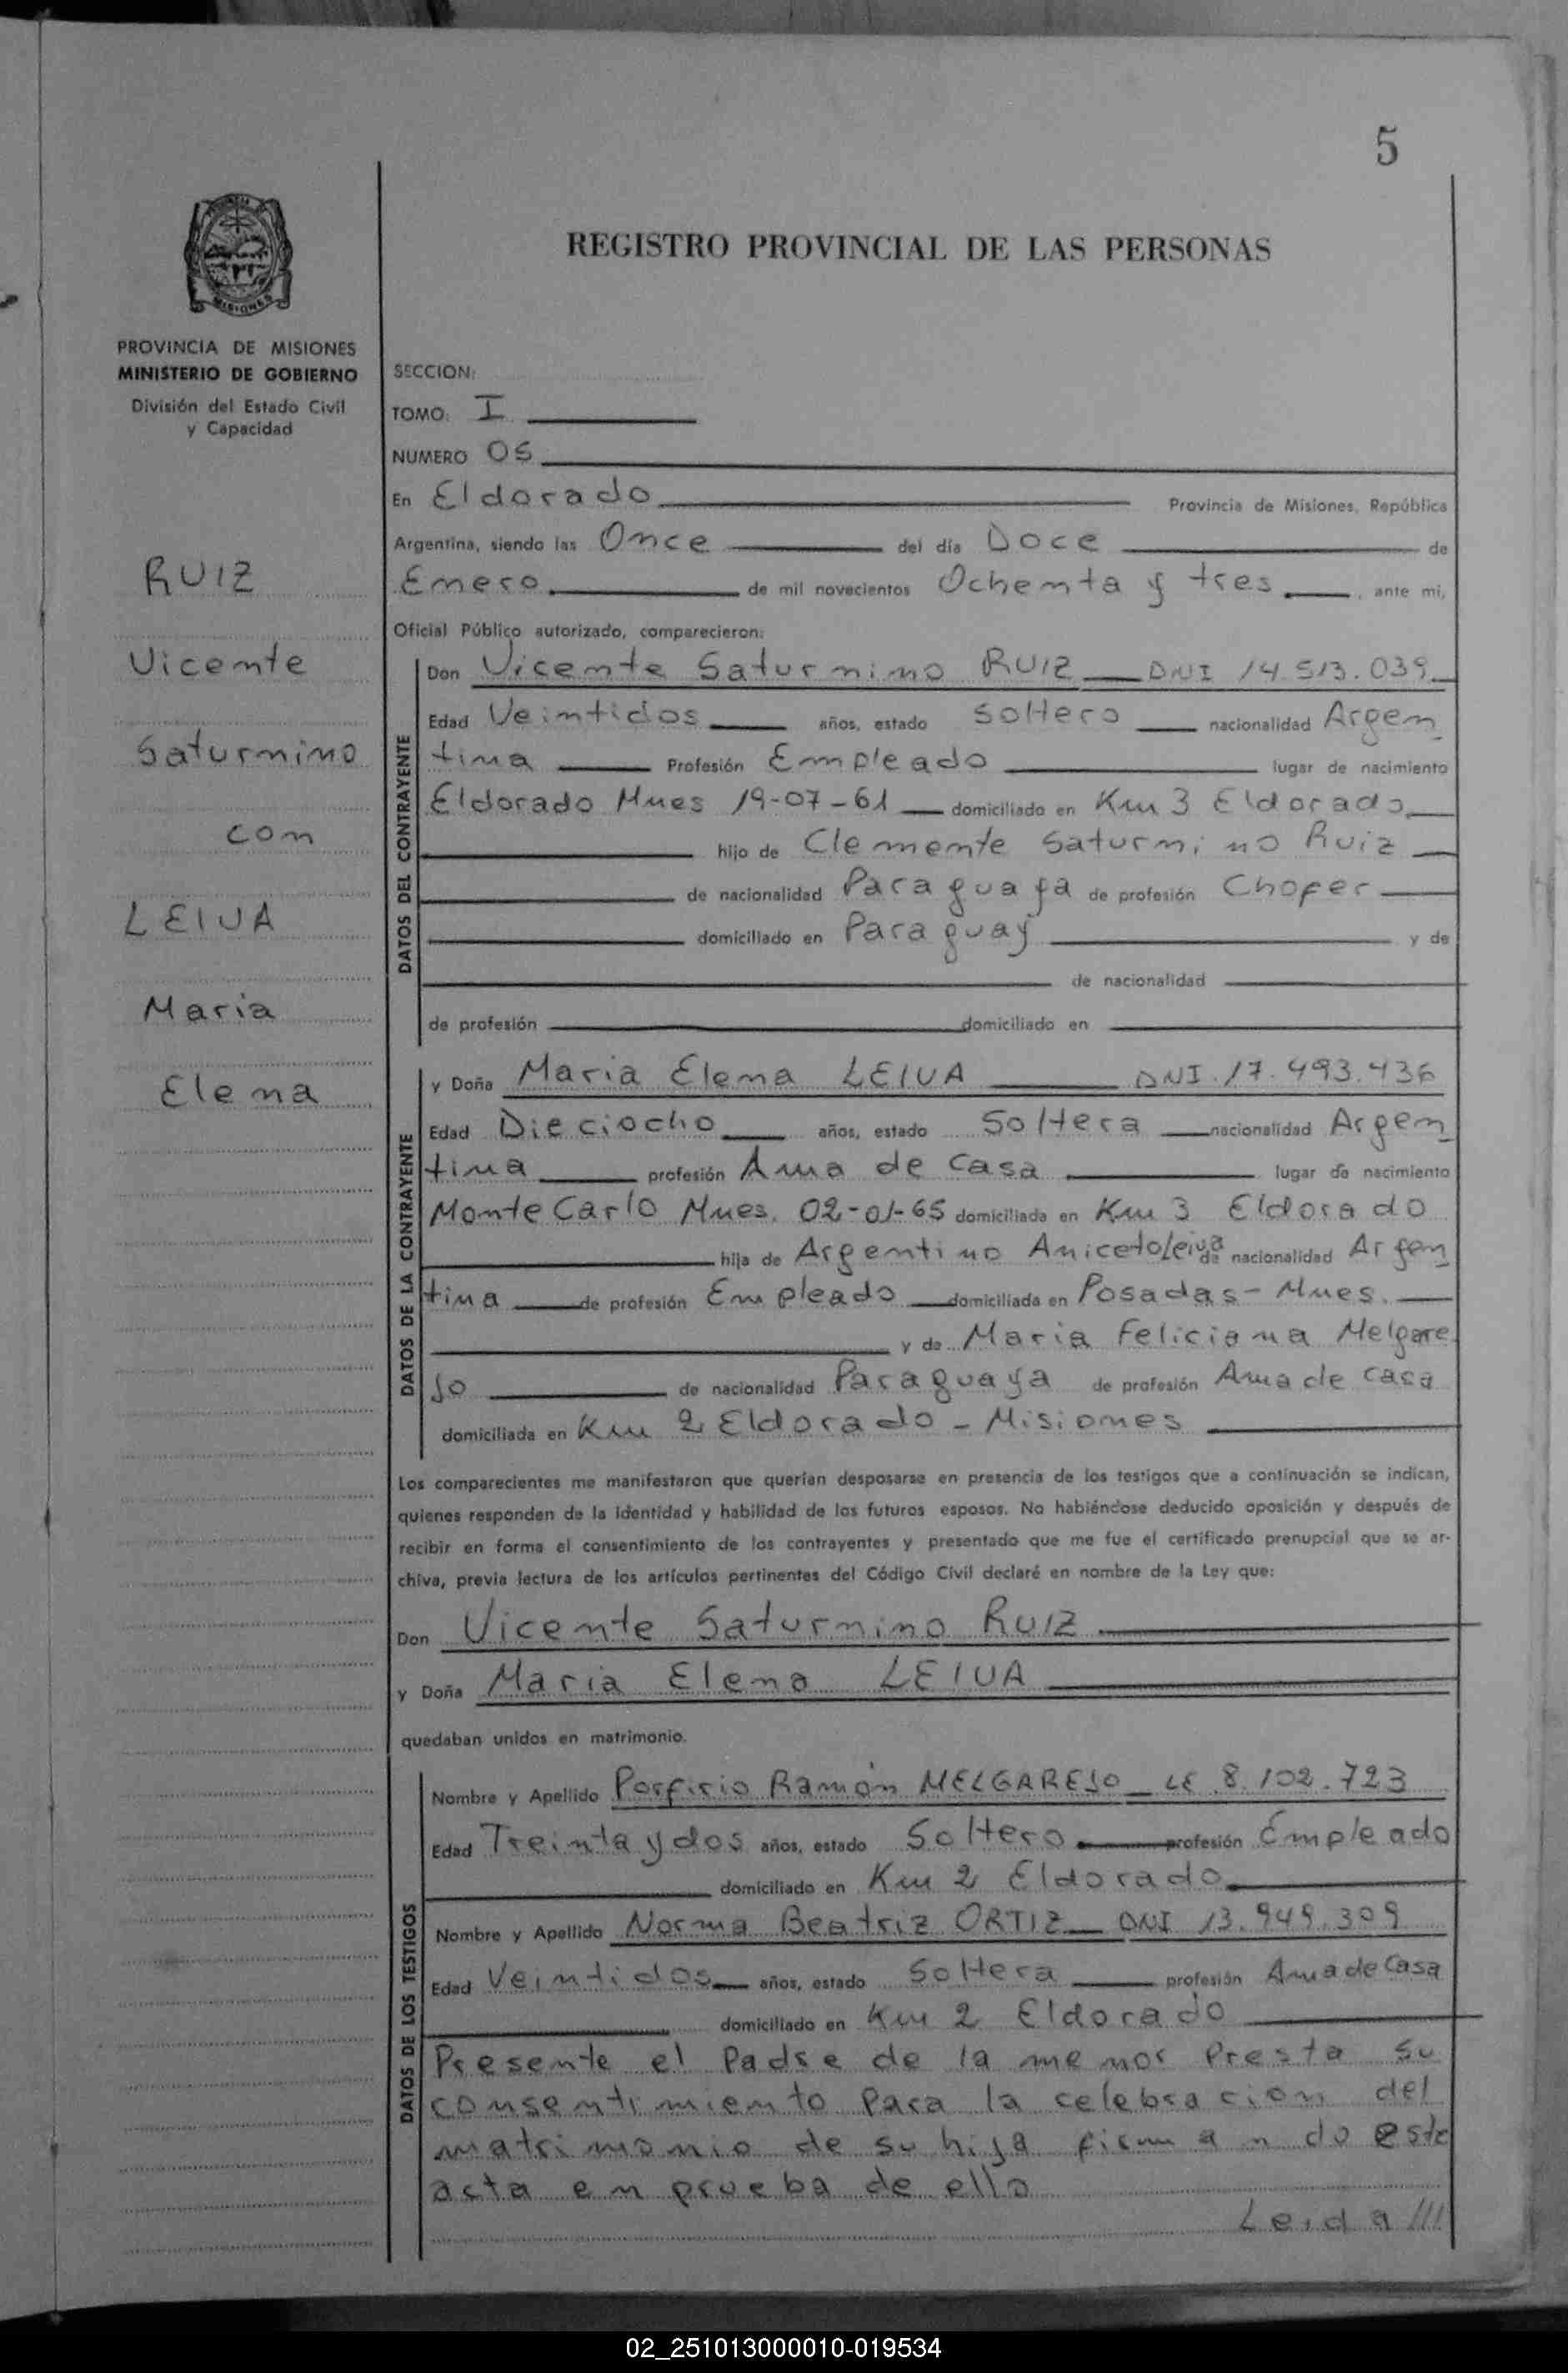 5
REGISTRO PROVINCIAL DE LAS PERSONAS
MISIONES
PROVINCIA DE MISIONES
MINISTERIO DE GOBIERNO
División del Estado Civil
y Capacidad
RUIZ
Vicente
Saturnino
con
LEIVA
Maria
Elena
SECCION:
TOMO: I
NUMERO 05
En Eldorado Provincia de Misiones, República
Argentina, siendo las Once del día Doce de
Enero de mil novecientos Ochenta y tres, ante mi,
Oficial Público autorizado, comparecieron:
DATOS DEL CONTRAYENTE
Don Vicente Saturnino RUIZ DNI 14.513.039
Edad Veintidos años, estado Soltero nacionalidad Argen
tina Profesión Empleado lugar de nacimiento
Eldorado Mnes 19-07-61 domiciliado en Km 3 Eldorado
hijo de Clemente Saturnino Ruiz
de nacionalidad Paraguaya de profesión Chofer
domiciliado en Paraguay y de
de nacionalidad
de profesión domiciliado en
DATOS DE LA CONTRAYENTE
y Doña Maria Elena LEIVA DNI.17.493.436
Edad Dieciocho años, estado Soltera nacionalidad Argen
tina profesión Ama de casa lugar de nacimiento
Monte Carlo Mnes. 02-01-65 domiciliada en Km 3 Eldorado
hija de Argentino Aniceto Leiva de nacionalidad Argen
tina de profesión Empleado domiciliada en Posadas - Mnes.
y de Maria Feliciana Melgare
jo de nacionalidad Paraguaya de profesión Ama de casa
domiciliada en Km 2 Eldorado - Misiones
Los comparecientes me manifestaron que querían desposarse en presencia de los testigos que a continuación se indican,
quienes responden de la identidad y habilidad de los futuros esposos. No habiéndose deducido oposición y después de
recibir en forma el consentimiento de los contrayentes y presentado que me fue el certificado prenupcial que se ar-
chiva, previa lectura de los artículos pertinentes del Código Civil declaré en nombre de la Ley que:
Don Vicente Saturnino RUIZ
y Doña Maria Elena LEIVA
quedaban unidos en matrimonio.
DATOS DE LOS TESTIGOS
Nombre y Apellido Porfirio Ramón MELGAREJO LE 8.102.723
Edad Treinta y dos años, estado Soltero profesión Empleado
domiciliado en Km 2 Eldorado
Nombre y Apellido Norma Beatriz ORTIZ DNI 13.949.309
Edad Veintidos años, estado Soltera profesión Ama de Casa
domiciliado en Km 2 Eldorado
Presente el Padre de la menor Presta su
consentimiento Para la celebracion del
matrimonio de su hija firmando este
acta en prueba de ello
Leida///
02_251013000010-019534